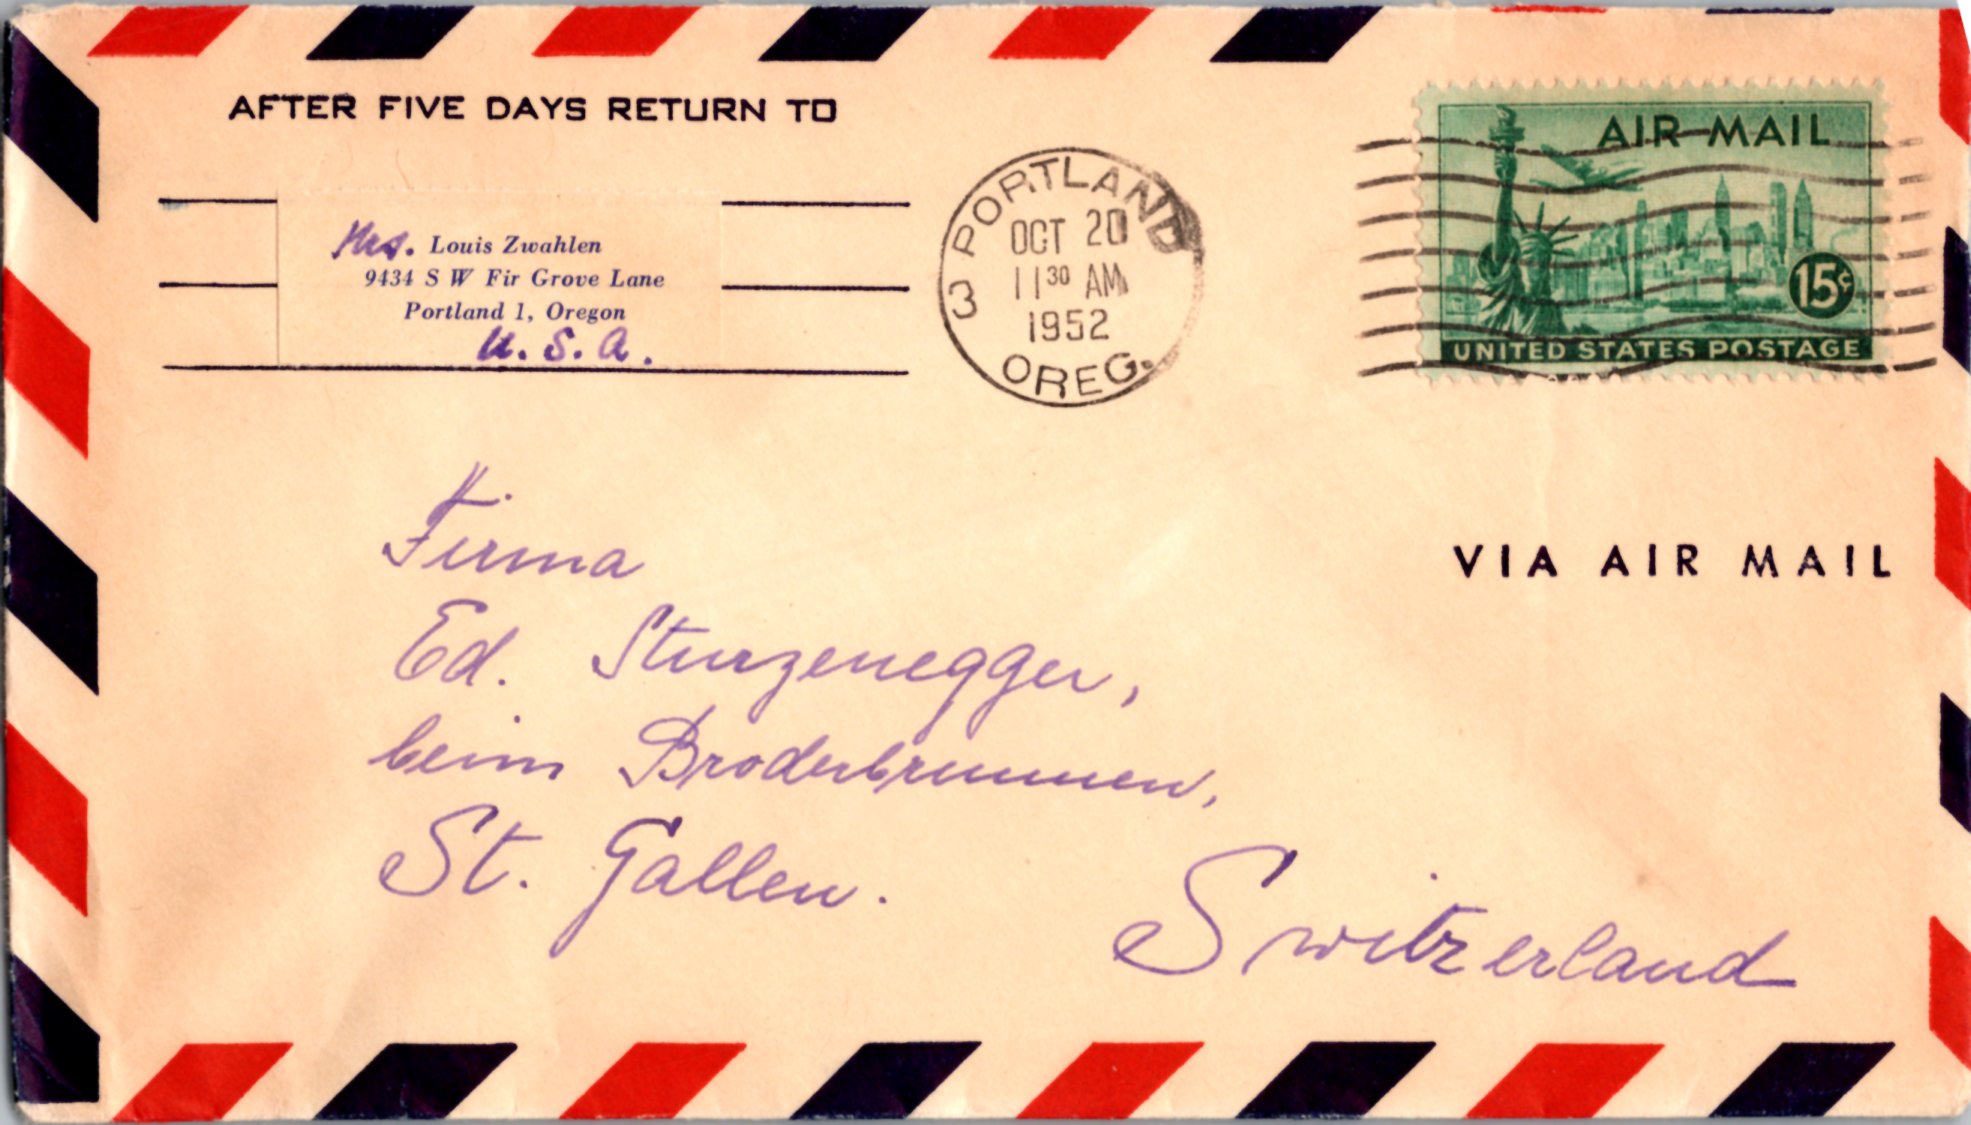 AFTER FIVE DAYS RETURN TO
Mrs. Louis Zwahlen
9434 S W Fir Grove Lane
Portland 1, Oregon
U.S.A.
3 PORTLAND OREG.
OCT 20
11 30 AM
1952
AIR MAIL
15¢
UNITED STATES POSTAGE
VIA AIR MAIL
Firma
Ed. Sturzenegger,
beim Broderbrunnen,
St. Gallen.
Switzerland